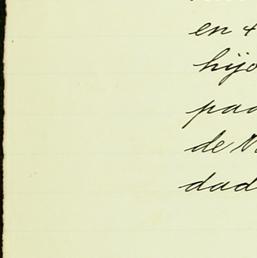 en
hijo
pad
de
dad